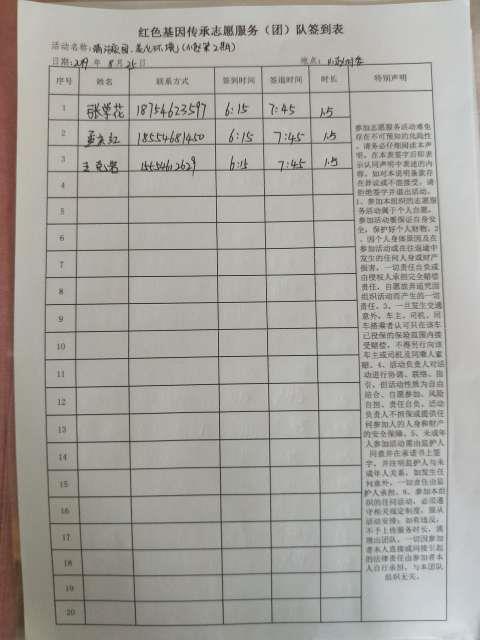 红色基因传承志愿服务（团）队签到表
活动名称：清洁家园，美化环境（第2期）
日期：2019年8月25日 地点：
序号 姓名 联系方式 签到时间 签退时间 时长 特别声明
1 张学花 18754623597 6:15 7:45 1.5
2 18554681450 6:15 7:45 1.5
3 王 6:15 7:45 1.5
4
5
6
7
8
9
10
11
12
13
14
15
16
17
18
19
20
参加志愿服务活动难免
存在不可预知的危险性
，请务必仔细阅读本声
明。在本表签字后即表
示认同声明中表述的内
容。如对本说明条款存
在异议或不能接受，请
拒绝签字并退出活动。
1、参加本组织的志愿服
务活动属于个人自愿，
参加活动要保证自身安
全，保护好个人财物。2
、因个人身体原因及在
参加活动或在往返途中
发生的任何人身或财产
损害，一切责任自负或
由侵权人承担完全赔偿
责任，自愿放弃追究因
组织活动而产生的一切
责任。3、一旦发生交通
意外，车主、司机、同
车搭乘者认可只在该车
已投保的保险范围内接
受赔偿，不得另行向该
车主或司机及同乘人索
赔。4、活动负责人对活
动进行协调、联络、指
引，但活动性质为自由
结合、自愿参加、风险
自担、责任自负，活动
负责人不担保或提供任
何参加人的人身和财产
的安全保障。5、未成年
人参加活动需由监护人
同意并在承诺书上签
字，并注明监护人与未
成年人关系，如发生任
何意外，一切责任由监
护人承担。6、参加本组
织的任何活动，必须遵
守相关规定制度，服从
活动安排；如有违反，
不予上传服务时长，清
理出团队。一切因参加
者本人直接或间接引起
的法律责任由参加者本
人自行承担，与本团队
组织无关。